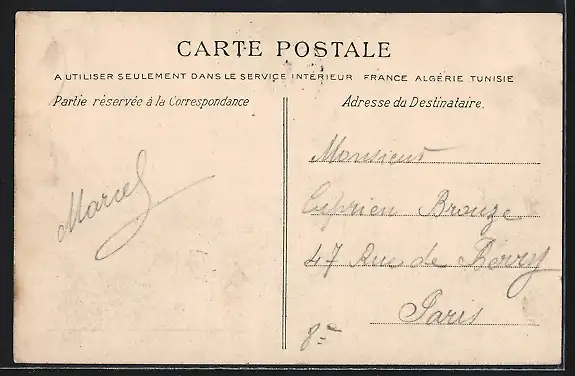 CARTE POSTALE
A UTILISER SEULEMENT DANS LE SERVICE INTÉRIEUR FRANCE ALGÉRIE TUNISIE
Partie réservée à la Correspondance
Adresse du Destinataire.
Marcel
Monsieur
Cyprien Bronze
47 Rue de Berry
Paris
8e